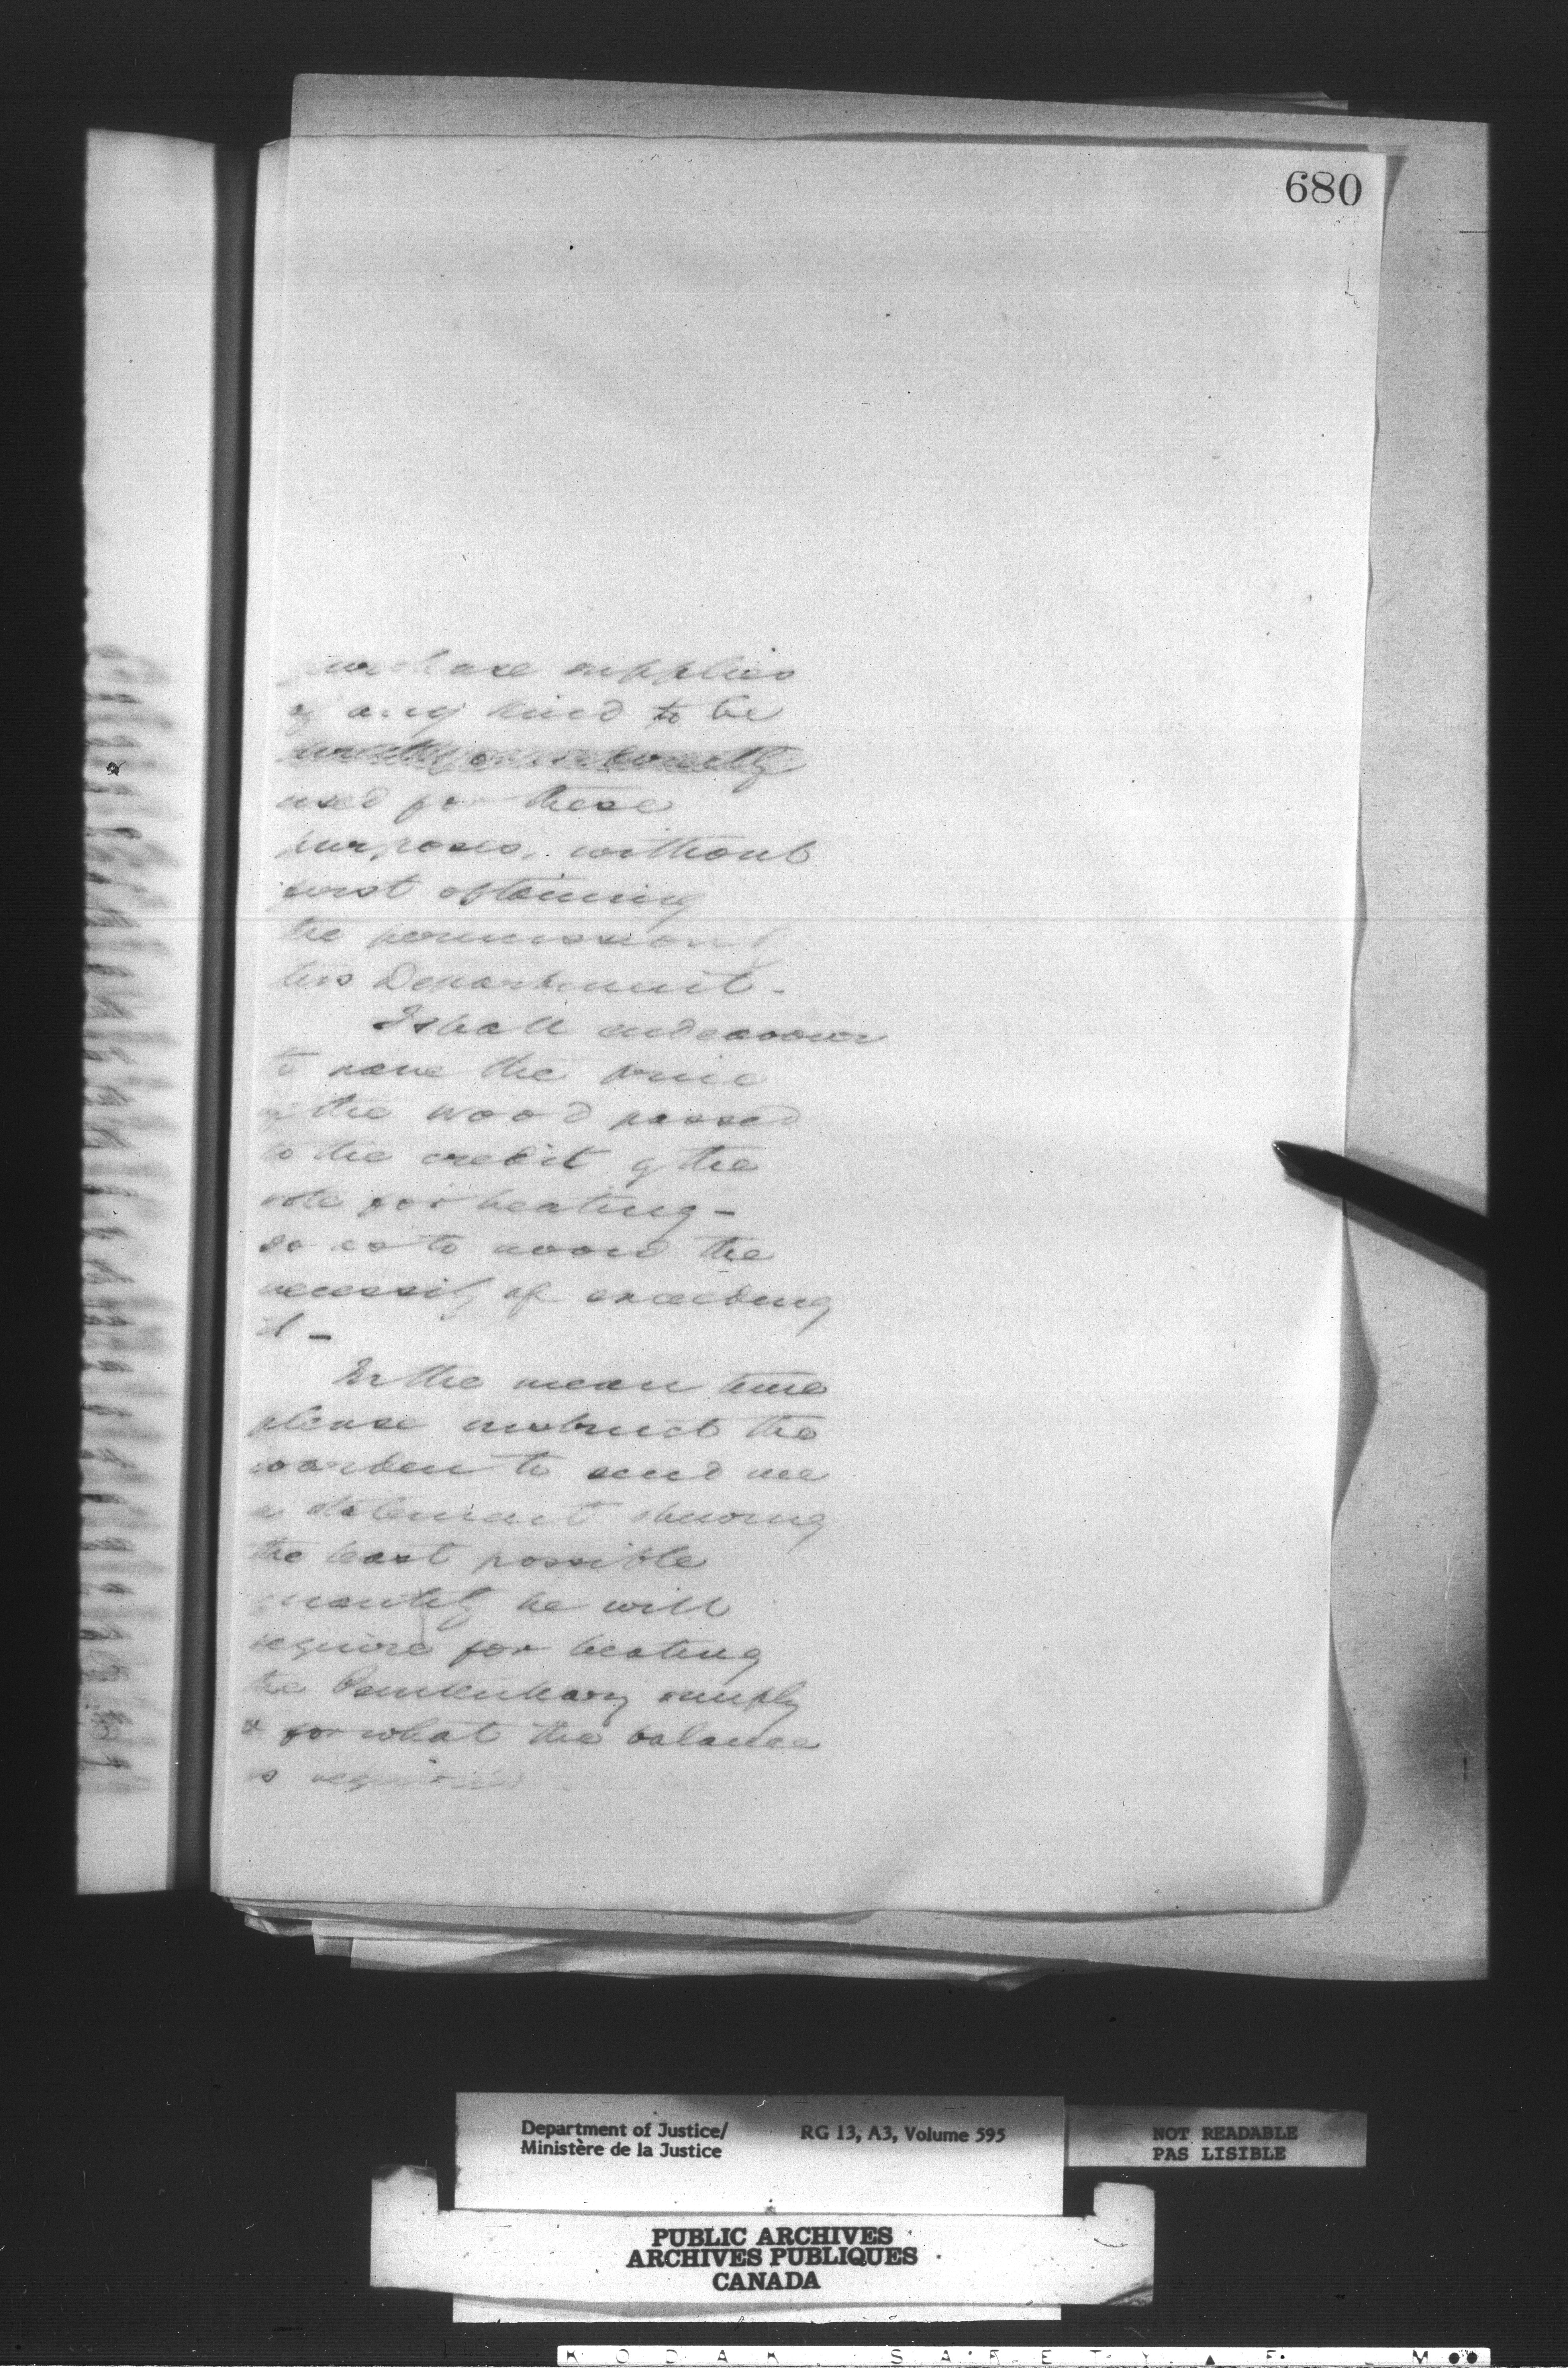 680
purchase supplies
of any kind to be
directly or indirectly
used for these
purposes, without
first obtaining
the permission of
this Department.
I shall endeavour
to have the price
of the wood passed
to the credit of the
vote for heating -
so as to avoid the
necessity of exceeding
it -
In the mean time
please instruct the
warden to send me
a statement shewing
the least possible
quantity he will
require for heating
the Penitentiary simply
& for what the balance
is required
Department of Justice/
Ministère de la Justice
RG 13, A3, Volume 595
NOT READABLE
PAS LISIBLE
PUBLIC ARCHIVES
ARCHIVES PUBLIQUES
CANADA
KODAK SAFETY FILM